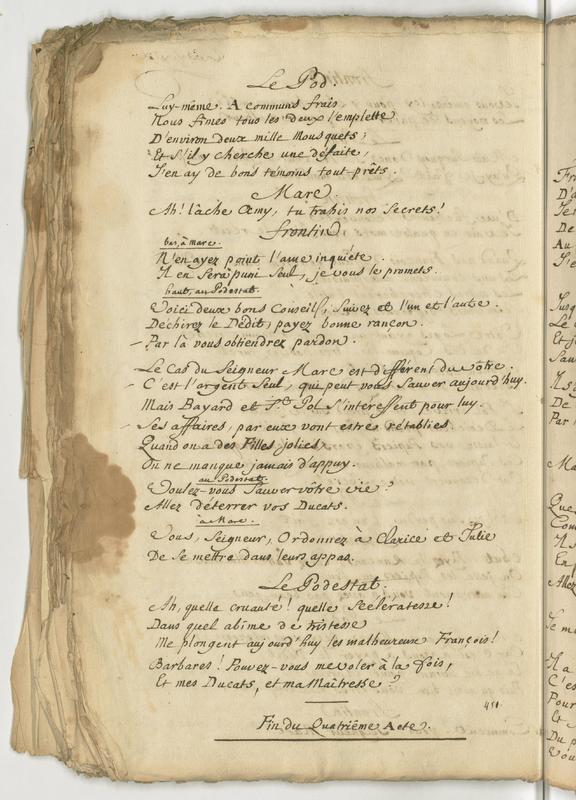 Le Pod.
Luy-même. A communs frais,
Nous fimes tous les deux l'emplette
D'environ deux mille Mousquets;
Et S'il y cherche une défaite,
J'en ay de bons témoins tout prêts.
Marc.
Ah! lâche Amy, tu trahis nos Secrets!
frontin.
bas, à Marc.
N'en ayez point l'ame inquiéte.
Il en Sera puni Seul, je vous le promets.
haut, au Podestat.
Voici deux bons Conseils, Suivez et l'un et l'autre.
Déchirez le Dédit, payez bonne rançon.
Par là vous obtiendrez pardon.
Le Cas du Seigneur Marc est différent du vôtre.
C'est l'argent Seul, qui peut vous Sauver aujourd'huy.
Mais Bayard et St. Pol S'intéressent pour luy.
Ses affaires, par eux vont estre rétablies.
Quand on a des Filles jolies,
On ne manque jamais d'appuy.
au Podestat.
Voulez-vous Sauver vôtre vie?
Allez déterrer vos Ducats.
à Marc.
Vous, Seigneur, Ordonnez à Clarice et Julie
De Se mettre dans leurs appas.
Le Podestat.
Ah, quelle cruauté! quelle Scélératesse!
Dans quel abîme de tristesse
Me plongent aujourd'huy les malheureux François!
Barbares! Pouvez-vous me voler à la fois,
Et mes Ducats, et ma Maîtresse?
451.
Fin du Quatriême Acte.